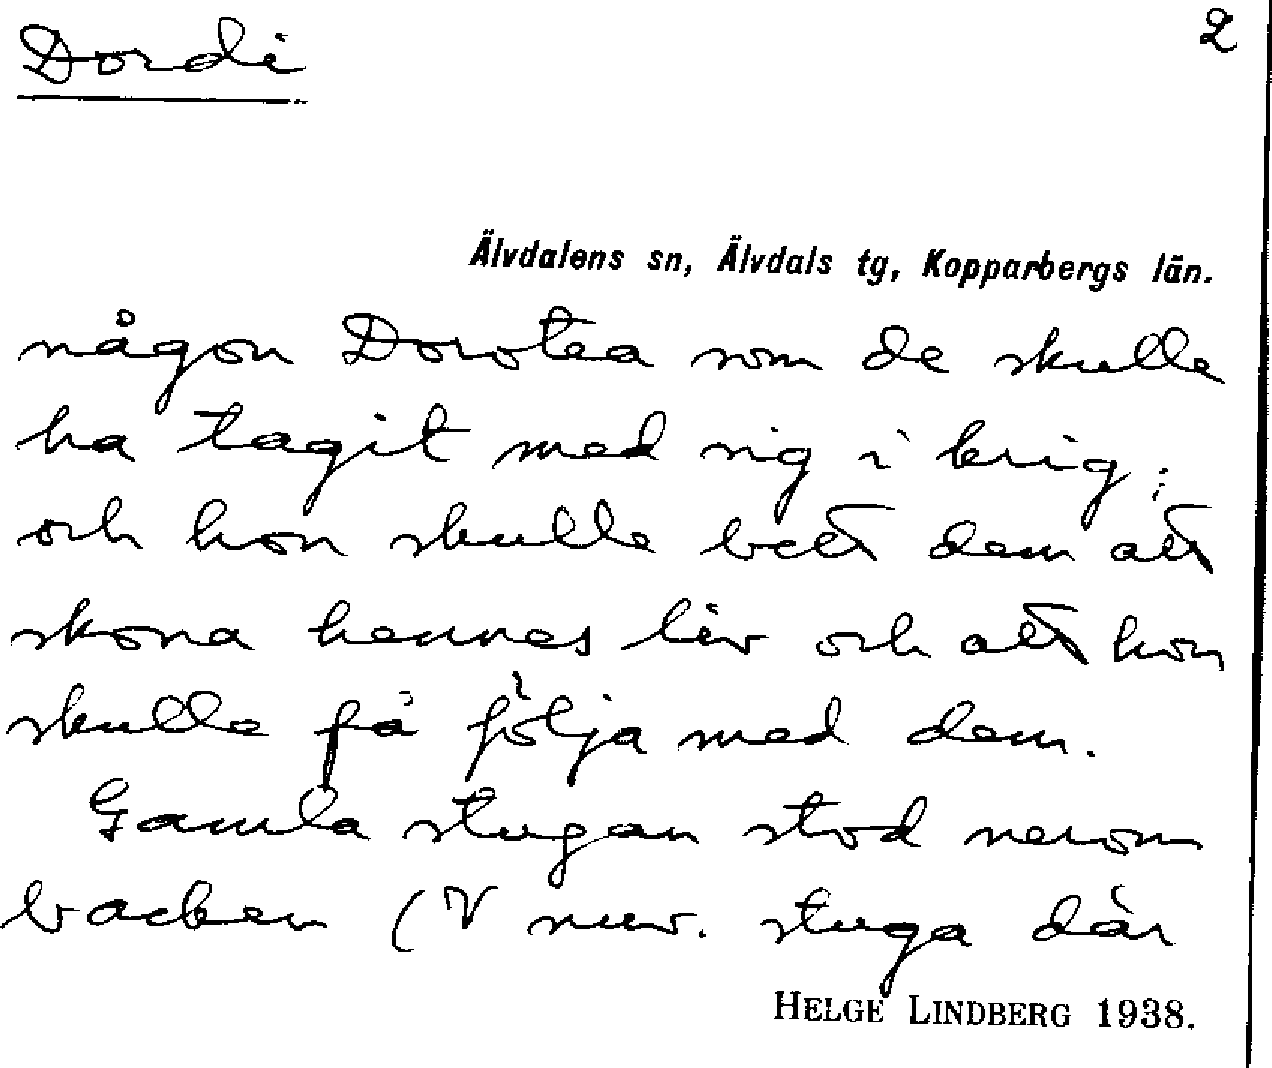 Dordi
2
Älvdalens sn, Älvdals tg, Kopparbergs län.
någon Dorotea som de skulle
ha tagit med sig i krig;
och hon skulle bett dem att
skona hennes liv och att hon
skulle få följa med dem.
Gamla stugan stod nerom
backen (V nuv. stuga där
HELGE LINDBERG 1938.